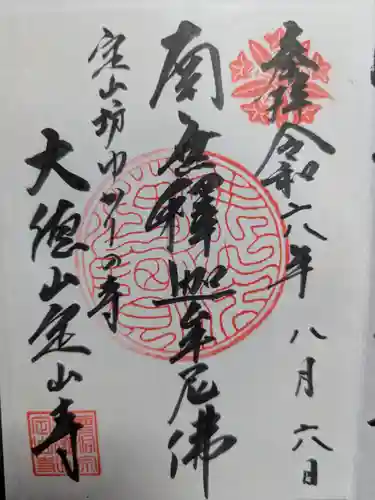 奉拝
令和六八年八月六日
南無釋迦牟尼佛
定山坊ゆかりの寺
大徳山定山寺